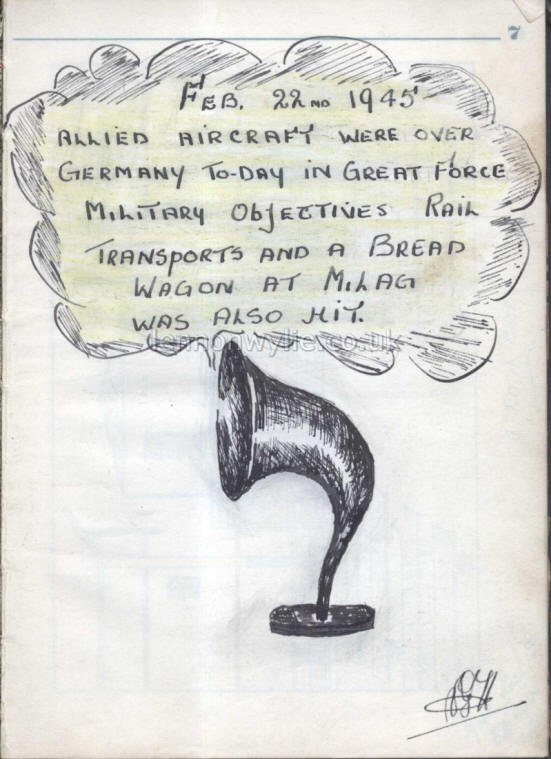 7
FEB. 22ND 1945
ALLIED AIRCRAFT WERE OVER
GERMANY TO-DAY IN GREAT FORCE
MILITARY OBJECTIVES RAIL
TRANSPORTS AND A BREAD
WAGON AT MILAG
WAS ALSO HIT.
lennonwylie.co.uk